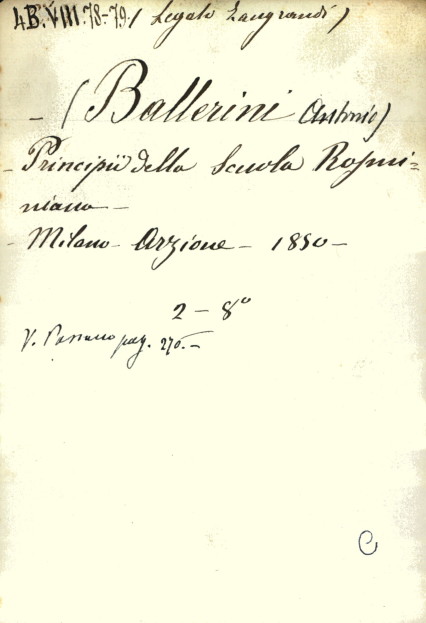 4.B.VIII.78-79. (Legato Zangrandi)
- (Ballerini Antonio)
- Principii della Scuola Rosmi=
niana -
- Milano - Arzione - 1850 -
2 - 8°
V. Passano pag. 270. -
C